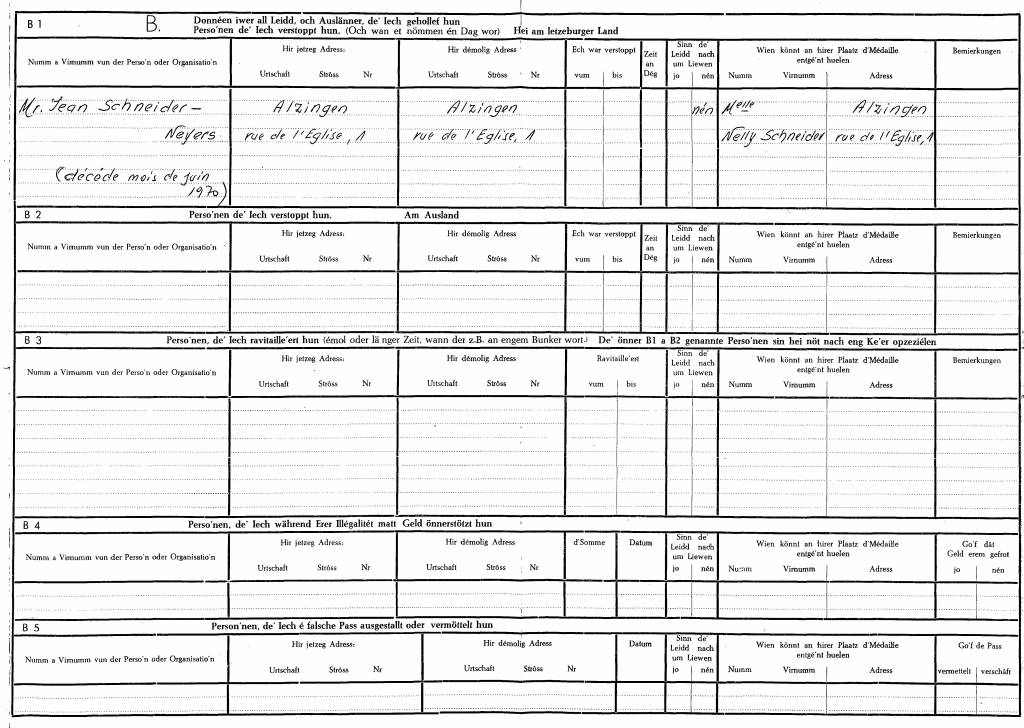 B 1 B. Donnéen iwer all Leidd, och Auslänner, de' Iech gehollef hun
Perso'nen de' Iech verstoppt hun. (Och wan et nömmen én Dag wor) Hei am letzeburger Land
Numm a Virnumm vun der Perso'n oder Organisatio'n
Hir jetzeg Adress:
Urtschaft Ströss Nr
Hir démolig Adress
Urtschaft Ströss Nr
Ech war verstoppt
vum bis
Zeit
an
Dég
Sinn de'
Leidd nach
um Liewen
jo nén
Wien könnt an hirer Plaatz d'Médaille
entgé'nt huelen
Numm Virnumm Adress
Bemierkungen
Mr. Jean Schneider — Alzingen Alzingen nén Melle Alzingen
Neyers rue de l'Eglise, 1 rue de l'Eglise, 1 Nelly Schneider rue de l'Eglise, 1
(décédé mois de juin
1970)
B 2 Perso'nen de' Iech verstoppt hun. Am Ausland
Numm a Virnumm vun der Perso'n oder Organisatio'n
Hir jetzeg Adress:
Urtschaft Ströss Nr
Hir démolig Adress
Urtschaft Ströss Nr
Ech war verstoppt
vum bis
Zeit
an
Dég
Sinn de'
Leidd nach
um Liewen
jo nén
Wien könnt an hirer Plaatz d'Médaille
entgé'nt huelen
Numm Virnumm Adress
Bemierkungen
B 3 Perso'nen, de' Iech ravitaille'ert hun (émol oder lä nger Zeit, wann der z.B. an engem Bunker wort.) De' önner B1 a B2 genannte Perso'nen sin hei nöt nach eng Ke'er opzeziélen
Numm a Virnumm vun der Perso'n oder Organisatio'n
Hir jetzeg Adress:
Urtschaft Ströss Nr
Hir démolig Adress
Urtschaft Ströss Nr
Ravitaille'ert
vum bis
Sinn de'
Leidd nach
um Liewen
jo nén
Wien könnt an hirer Plaatz d'Médaille
entgé'nt huelen
Numm Virnumm Adress
Bemierkungen
B 4 Perso'nen, de' Iech während Erer Illégalitét matt Geld önnerstötzt hun
Numm a Virnumm vun der Perso'n oder Organisatio'n
Hir jetzeg Adress:
Urtschaft Ströss Nr
Hir démolig Adress
Urtschaft Ströss Nr
d'Somme
Datum
Sinn de'
Leidd nach
um Liewen
jo nén
Wien könnt an hirer Plaatz d'Médaille
entgé'nt huelen
Numm Virnumm Adress
Go'f dât
Geld erem gefrot
jo nén
B 5 Person'nen, de' Iech é falsche Pass ausgestallt oder vermöttelt hun
Numm a Virnumm vun der Perso'n oder Organisatio'n
Hir jetzeg Adress:
Urtschaft Ströss Nr
Hir démolig Adress
Urtschaft Ströss Nr
Datum
Sinn de'
Leidd nach
um Liewen
jo nén
Wien könnt an hirer Plaatz d'Médaille
entgé'nt huelen
Numm Virnumm Adress
Go'f de Pass
vermettelt verschâft